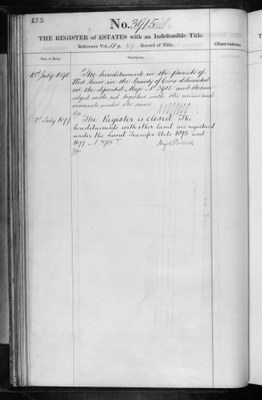 175
No. 3915
THE REGISTER of ESTATES with an Indefeasible Title
Reference Vol. p. 49 Record of Title.
Observations.
Date of Entry.
Description.
15th July 1890
The hereditaments in the parish of
in the County of
in the deposited Map No. 3915 and thereon
edged with red together with the mines and
minerals under the same
1st July 1899
The Register is closed. The
hereditaments with other land are registered
under the Land Transfer Acts 1875 and
1897